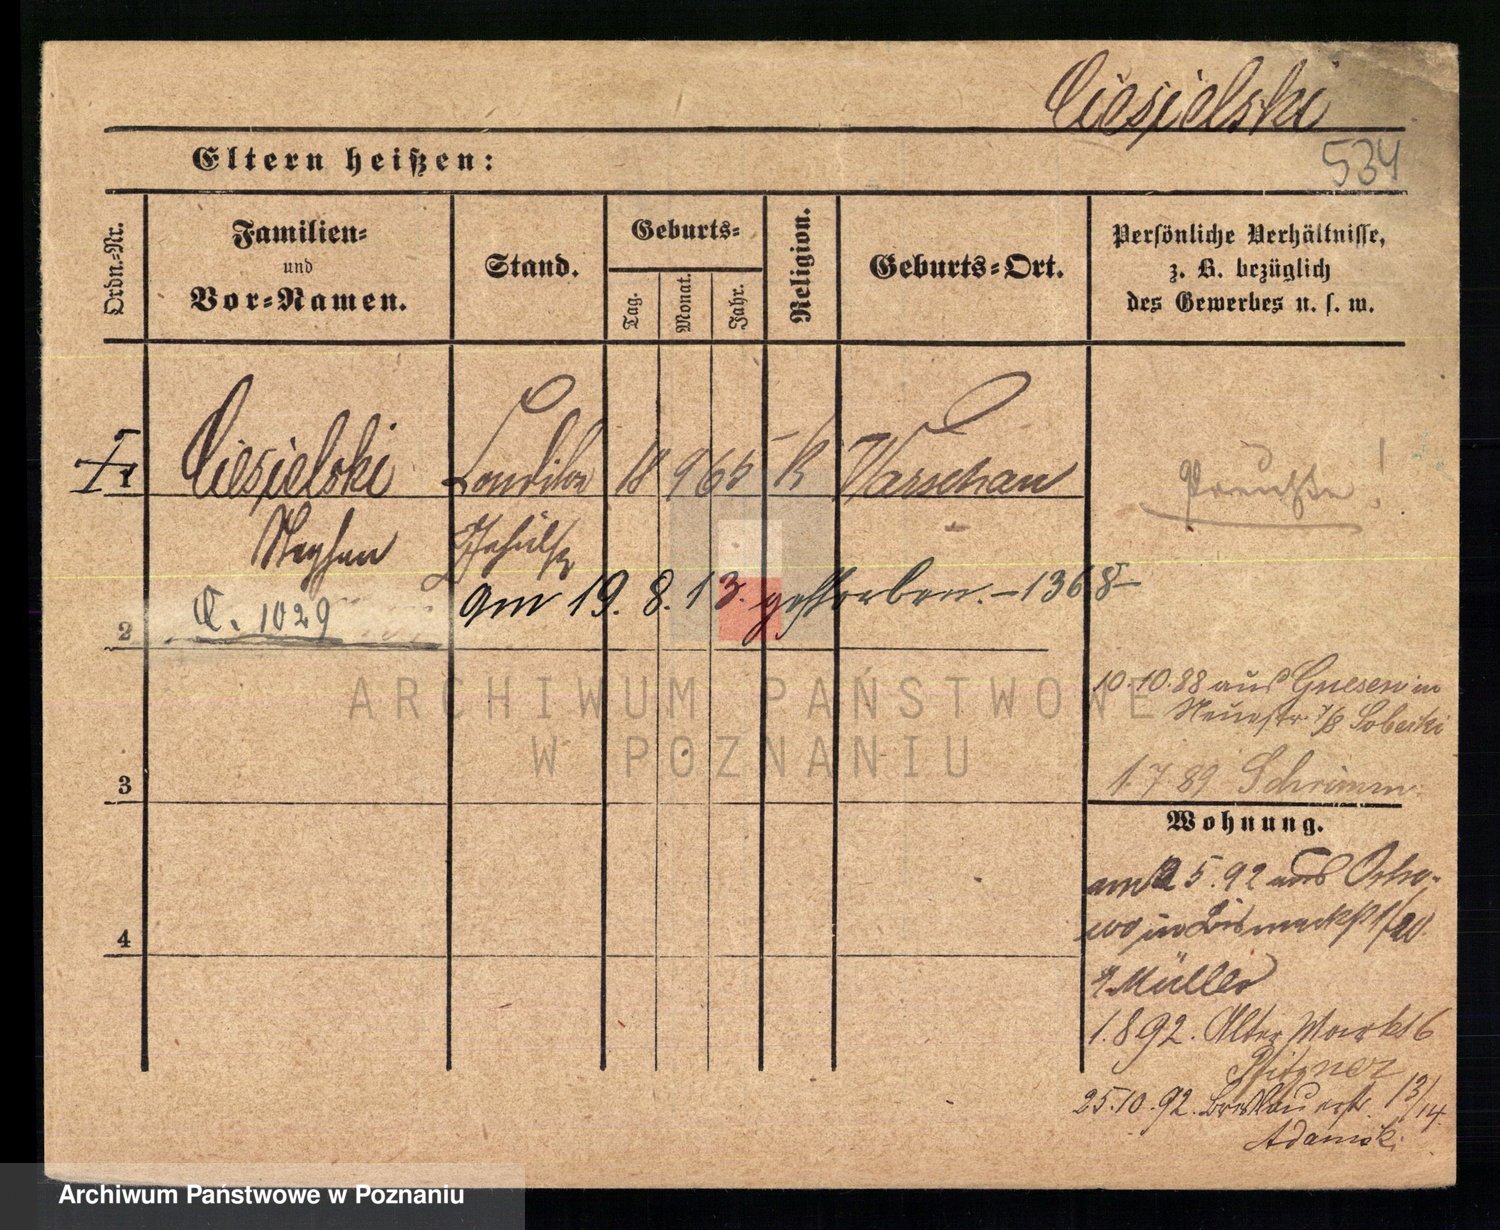 Ciesielski
534
Eltern heißen:
Ordn.-Nr.
Familien-
und
Vor-Namen.
Stand.
Geburts-
Tag.
Monat.
Jahr.
Religion.
Geburts-Ort.
Persönliche Verhältnisse,
z. B. bezüglich
des Gewerbes u. s. w.
Ciesielski Conditor 18 9 65 K Warschau
Preuße!
Stephan Gehülfe
C. 1029
am 19. 8. 13. gestorben. – 1368 –
2
10.10.88 aus Gnesen in
Neuestr 7/8 Sobecki
ARCHIWUM PAŃSTWOWE
W POZNANIU
1.7 89 Schrimm
3
Wohnung.
am 2 5. 92 aus Ostro-
wo in Bismarckst 1/
4
Müller
1.8 92. Alter Markt 6
Pfitzner
25.10.92. Breslauerstr. 13/14.
Adamski
Archiwum Państwowe w Poznaniu